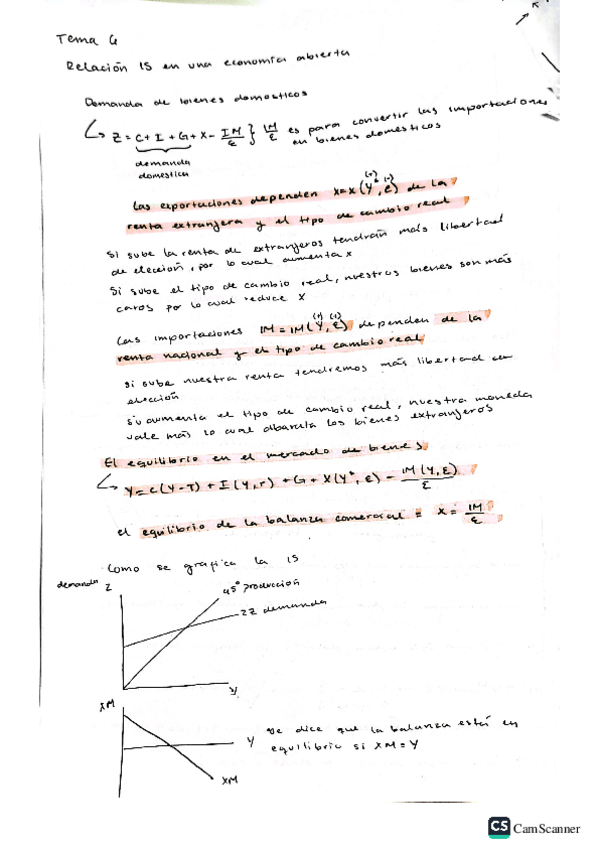 Tema 6
Relación IS en una economía abierta
Demanda de bienes domesticos
↳ Z = C + I + G + X - IM/ε } IM/ε es para convertir las importaciones
en bienes domesticos
demanda
domestica
Las exportaciones dependen X=X(Y*, ε) de la
(+) (-)
renta extranjera y el tipo de cambio real
Si sube la renta de extranjeros tendrán más libertad
de elección, por lo cual aumenta X
Si sube el tipo de cambio real, nuestros bienes son más
caros por lo cual reduce X
Las importaciones IM = IM(Y, ε) dependen de la
(+) (+)
renta nacional y el tipo de cambio real
Si sube nuestra renta tendremos más libertad en
elección
Si aumenta el tipo de cambio real, nuestra moneda
vale más lo cual abarata los bienes extranjeros
El equilibrio en el mercado de bienes
↳ Y = C(Y-T) + I(Y,r) + G + X(Y*, ε) - IM(Y,ε)/ε
el equilibrio de la balanza comercial = X = IM/ε
Como se grafica la IS
demanda Z
45° producción
ZZ demanda
Y
XM
Y
XM
Se dice que la balanza está en
equilibrio si XM = Y
CS CamScanner